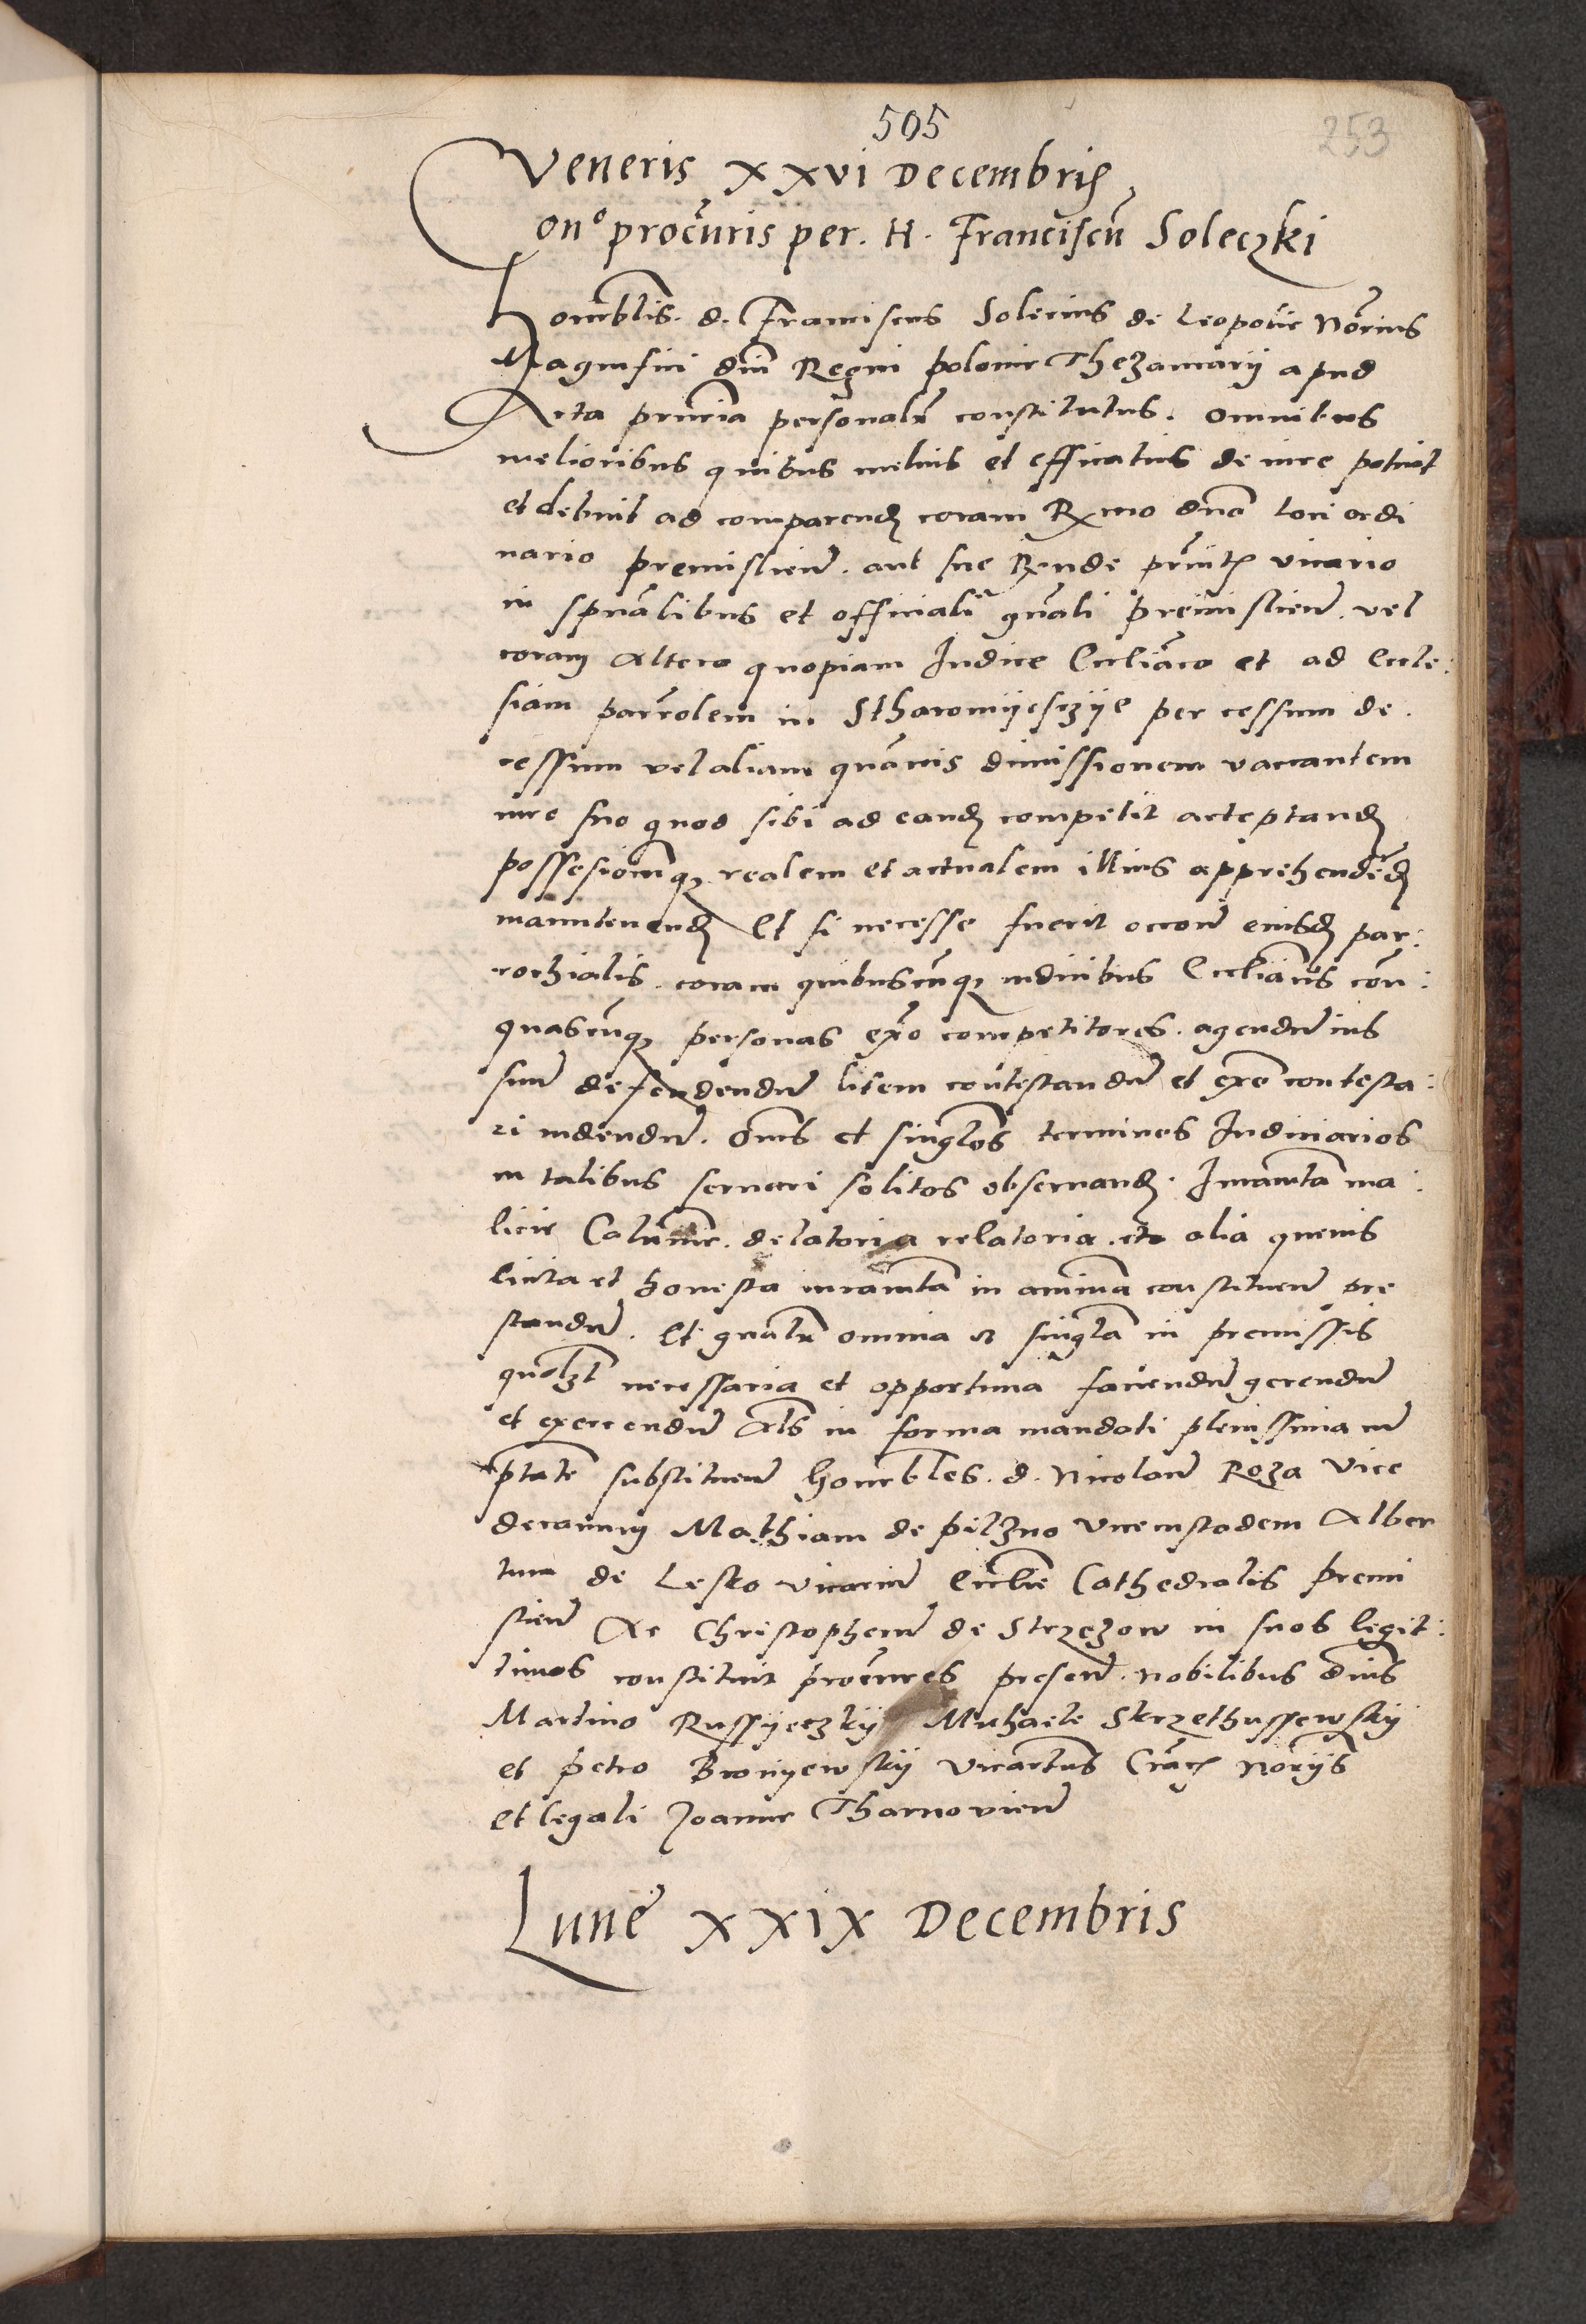 505
253
Veneris xxvi Decembris
Con° procuris per. H. Franciscu Soleczki
honorablis. d. Franciscus Solecius de Leopolie Notrius
Magnifici dni Regni polonie Thezaurarij apud
Acta pruria personalr constitutus. omnibus
melioribus quibus melius et efficatius de iure potuit
et debuit ad comparend coram Rxmo dno loci ordi
nario premislien. aut sue Rxnde prnit vicario
in spualibus et officiali gnali premislien. vel
coram altero quopiam Judice Eccliaco et ad Eccle:
siam parrolem in Stharomijesczije per cessum de.
cessum vel aliam quamis dimissionem vaccantem
iure suo quod sibi ad eand competit acceptand
possesiomq realem et actualem illius apprehended
manutenend Et si necesse fuerit occone eiusd par:
rochialis. coram quibuscuq iudicibus Eccliacis con:
quascuq personas exro competitores. agendu ius
suu defendendu litem contestandu et exre contesta:
ri videndu. oms et singlos terminos Judiciarios
in talibus servari solitos observand. Juramta ma:
licie Calumnie. delatoria relatoria. et alia quevis
licita et honesta iuramta in animam constituen pre
standu. Et gnalr omnia et singla in premissis
quolzt necessaria et opportuna faciendu gerendu
et exercendu Als in forma mandati plenissima cu
ptate substituen honorbles. d. Nicolau Roza vice
decanum Mathiam de pilzno vicecustodem Alber
tum de Lesko vicariu Ecclie Cathedralis premi
slien Ac Christopheru de Strzezow in suos legit:
timos constituit procures presen. nobilibus dnis
Martino Russyeczky Michaele Skrzethussewsky
et petro Bronyewsky vicartus Crac Norijs
et legali Joanne Tharnovien
Lune xxix Decembris